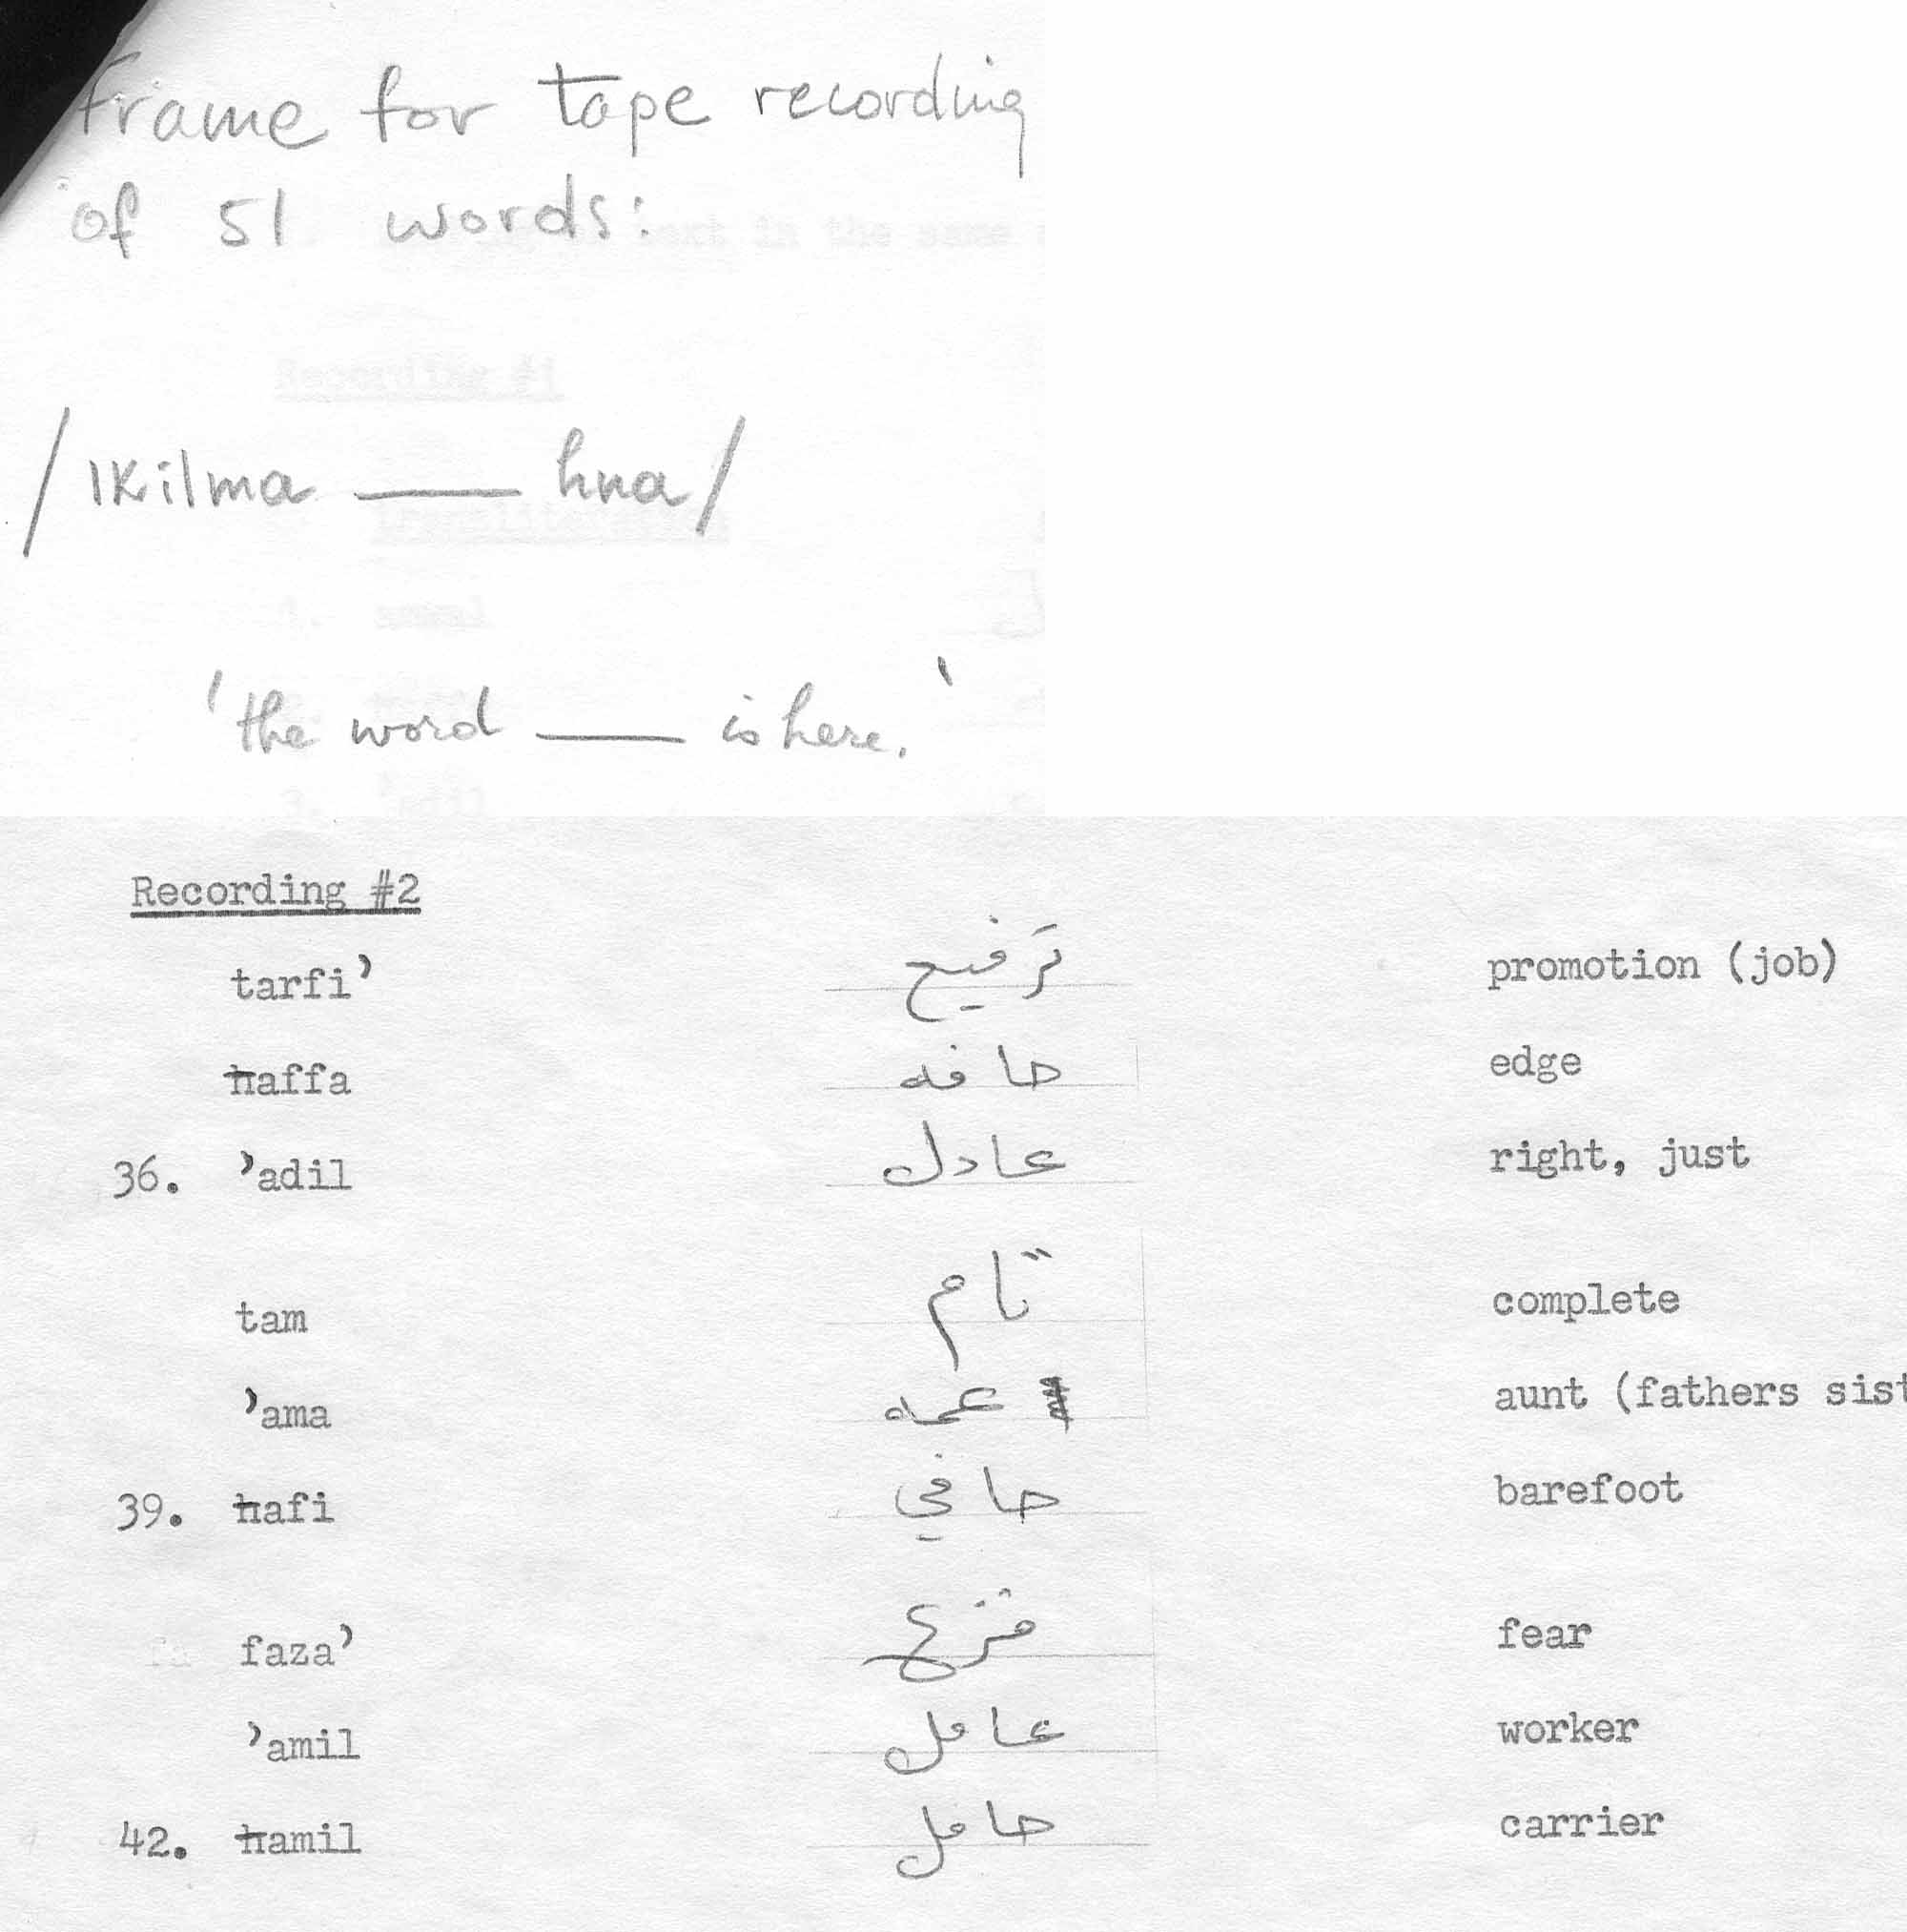 Frame for tape recording
of 51 words:
/lkilma ___ hna/
'the word ___ is here.'
Recording #2
tarfi’ ترفيع promotion (job)
ħaffa حافه edge
36. ’adil عادل right, just
tam تام complete
’ama عمه aunt (fathers sist
39. ħafi حافي barefoot
faza’ فزع fear
’amil عامل worker
42. ħamil حامل carrier